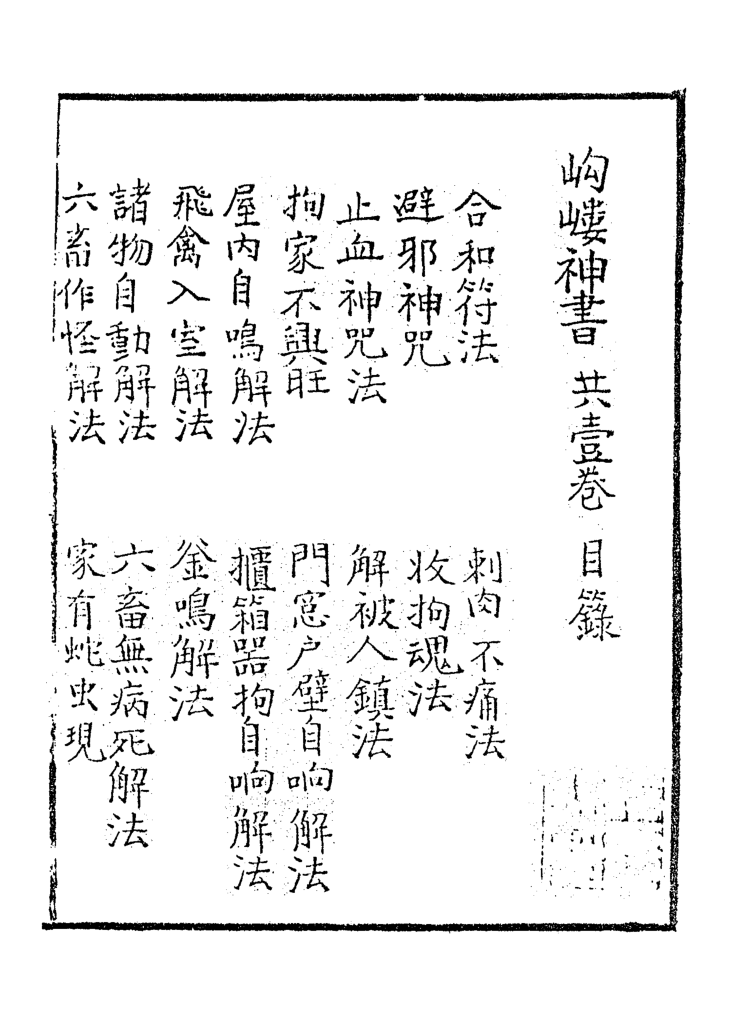 岣嶁神書 共壹卷 目籙
合和符法 刺肉不痛法
避邪神咒 收拘魂法
止血神咒法 解被人鎮法
拘家不興旺 門窓户壁自响解法
屋內自鳴解法 櫃箱器拘自响解法
飛禽入室解法 釜鳴解法
諸物自動解法 六畜無病死解法
六畜作怪解法 家有蛇虫現